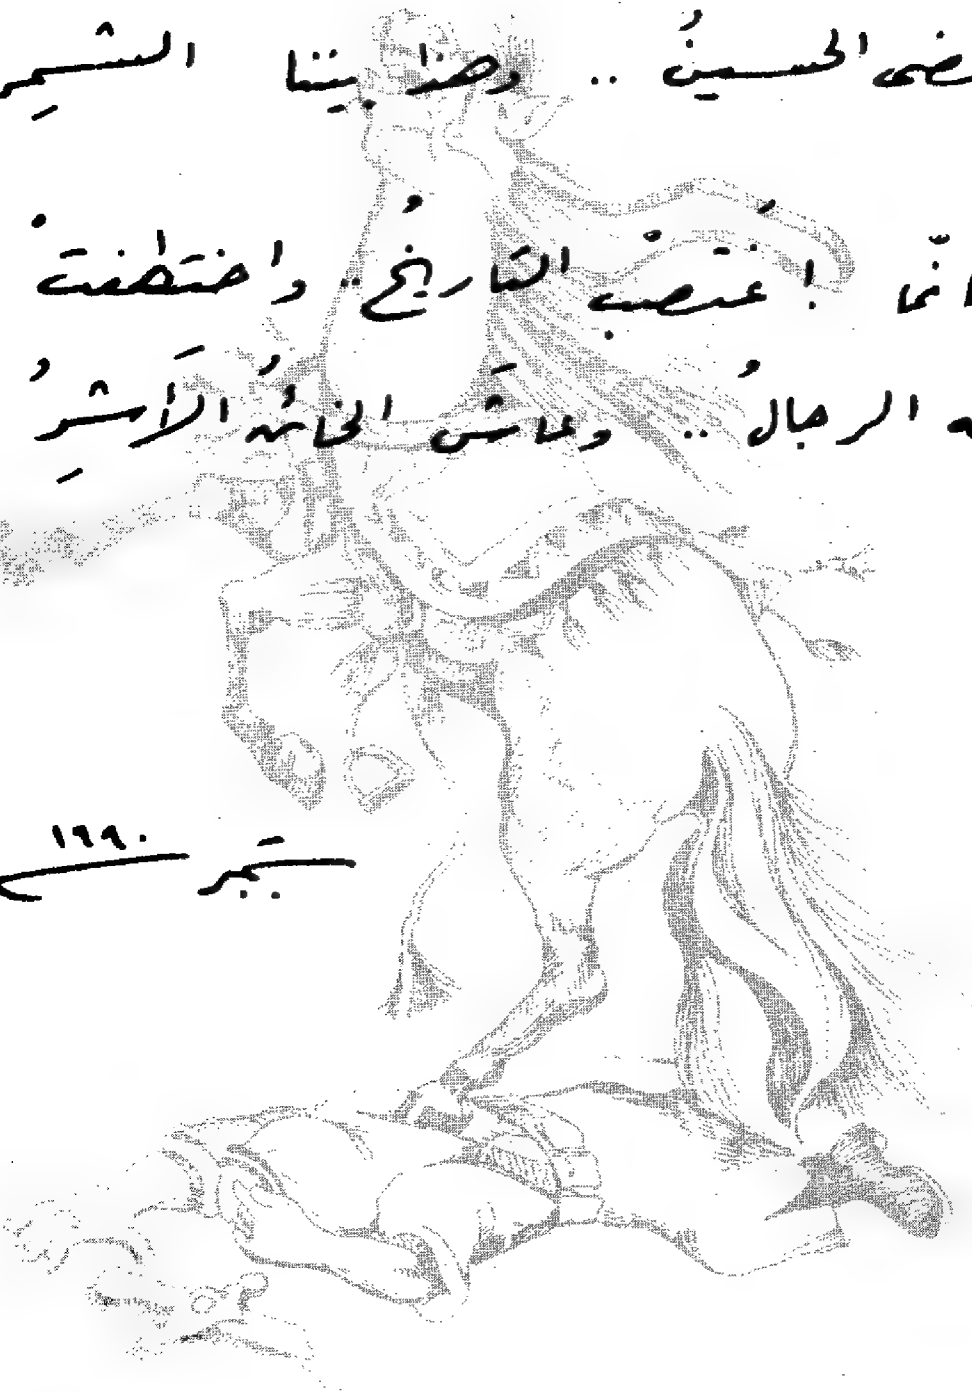 ضى الحسينُ .. وهذا بيننا الشمِر
انّما اغتصبْ التاريخُ .. واختطفتْ
ه الرجالُ .. وعاشَ الخائنُ الأَشِرُ
١٩٩٠